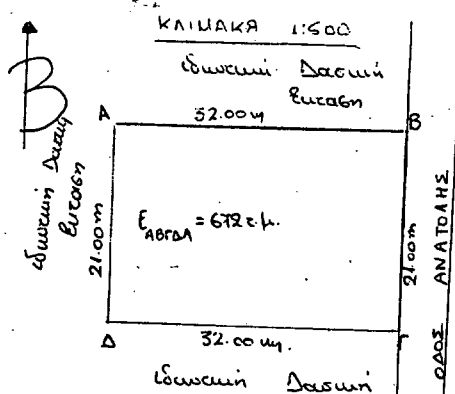 ΚΛΙΜΑΚΑ 1:500
ιδιωτική Δασική
Έκταση
Β
Α
32.00 m
Β
ιδιωτική Δασική
Έκταση
21.00 m
Ε ΑΒΓΔΑ = 672 τ.μ.
21.00 m
ΟΔΟΣ ΑΝΑΤΟΛΗΣ
Δ
32.00 m.
Γ
ιδιωτική Δασική